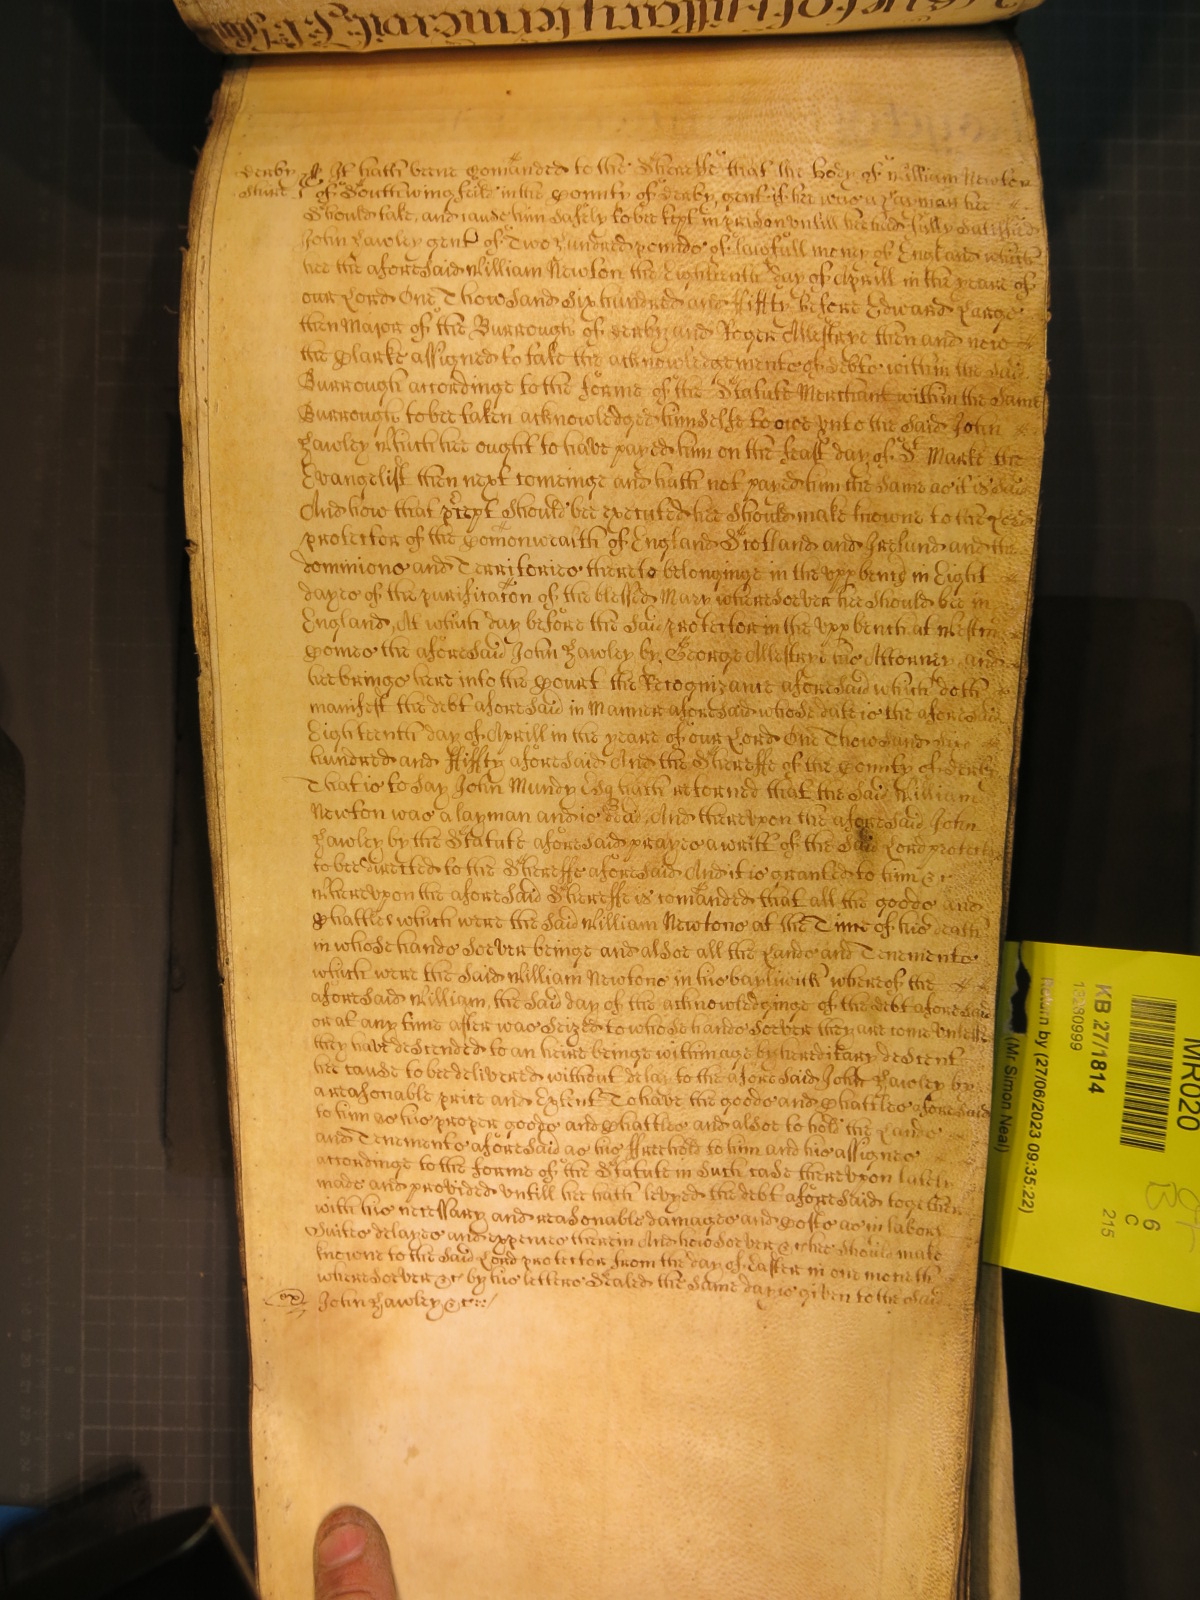 derby It hath beene Comanded to the Shereffe that the Body of William Newton
Shire of Southwingfeild in the County of derby, gent if hee was a Layman hee
Should take, and cause him Safely to bee kept in prison untill hee had fully Satisfied
John Hawley gent of Two Hundred pounds of lawfull money of England which
hee the aforeSaid William Newton the Eighteenth day of Aprill in the yeare of
our Lord One ThowSand Six hundred and ffifty before Edward Large
then Major of the Burrough of derby and Roger Allestrye then and now
the Clarke assigned to take the acknowledgements of debts within the Said
Burrough accordinge to the forme of the Statute Merchant within the Same
Burrough to bee taken acknowledged himselfe to owe vnto the Said John
Hawley Which hee ought to have payed him on the feast day of St Marke the
Evangelist then next comeinge and hath not payed him the Same as it is Said
And how that precept Should bee executed hee Should make knowne to the Lord
protector of the Comonwealth of England Scotland and Ireland and the
dominions and Territories thereto belonginge in the vpp bench in Eight
dayes of the purificacon of the blessed Mary whereSoever hee Should bee in
England, At which day before the Said protector in the vpp bench at Westm
Comes the aforeSaid John Hawley by George Allestrye his Attorney and
hee brings here into the Court the Recognizance aforeSaid which doth
manifest the debt aforeSaid in Manner aforeSaid whoSe date is the aforeSaid
Eighteenth day of Aprill in the yeare of our Lord One ThowSand Six
hundred and ffiffty aforeSaid And the Shereffe of the County of derby
That is to Say John Mundy Esq hath returned that the Said William
Newton was a layman and is dead, And therevpon the aforeSaid John
Hawley by the Statute aforeSaid prayes a writt of the Said Lord protector
to bee directed to the Shereffe aforeSaid And it is granted to him &c
Wherevpon the aforeSaid Shereffe is comanded that all the goods and
Chattles which were the Said William Newtons at the Time of his death
in whoSe hands Soever beinge and alSoe all the Lands and Tenements
which were the Said William Newtons in his bayliwick whereof the
aforeSaid William, the Said day of the acknowledginge of the debt aforeSaid
or at any time after was Seized to whoSe hands Soever they are come vnlesse
they have deScended to an heire beinge within age by hereditary deScent
hee cause to bee delivered without delay to the aforeSaid John Hawley by
a reaSonable price and Extent To have the goods and Chattles aforeSaid
to him as his proper goods and Chattles and alSoe to hold the Lands
and Tenements aforeSaid as his ffreehold to him and his assignes
accordinge to the forme of the Statute in Such caSe therevpon lately
made and provided vntill hee hath levyed the debt aforeSaid together
with his necessary and reaSonable damages and Costs as in labors
Suites delayes and expences therein And how Soever &c hee Should make
knowne to the Said Lord protector from the day of Easter in one moneth
whereSoever &c by his letters Sealed the Same day is given to the Said
ex John Hawley &c
MR020
KB 27/1814
13280999
Return by (27/06/2023 09:35:22)
(Mr Simon Neal)
6
C
215